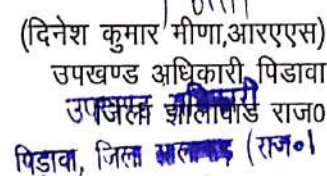 (दिनेश कुमार मीणा,आरएएस)
उपखण्ड अधिकारी पिडावा
जिला झालावाड राज0
उपखण्ड अधिकारी
पिड़ावा, जिला झालावाड़ (राज०)